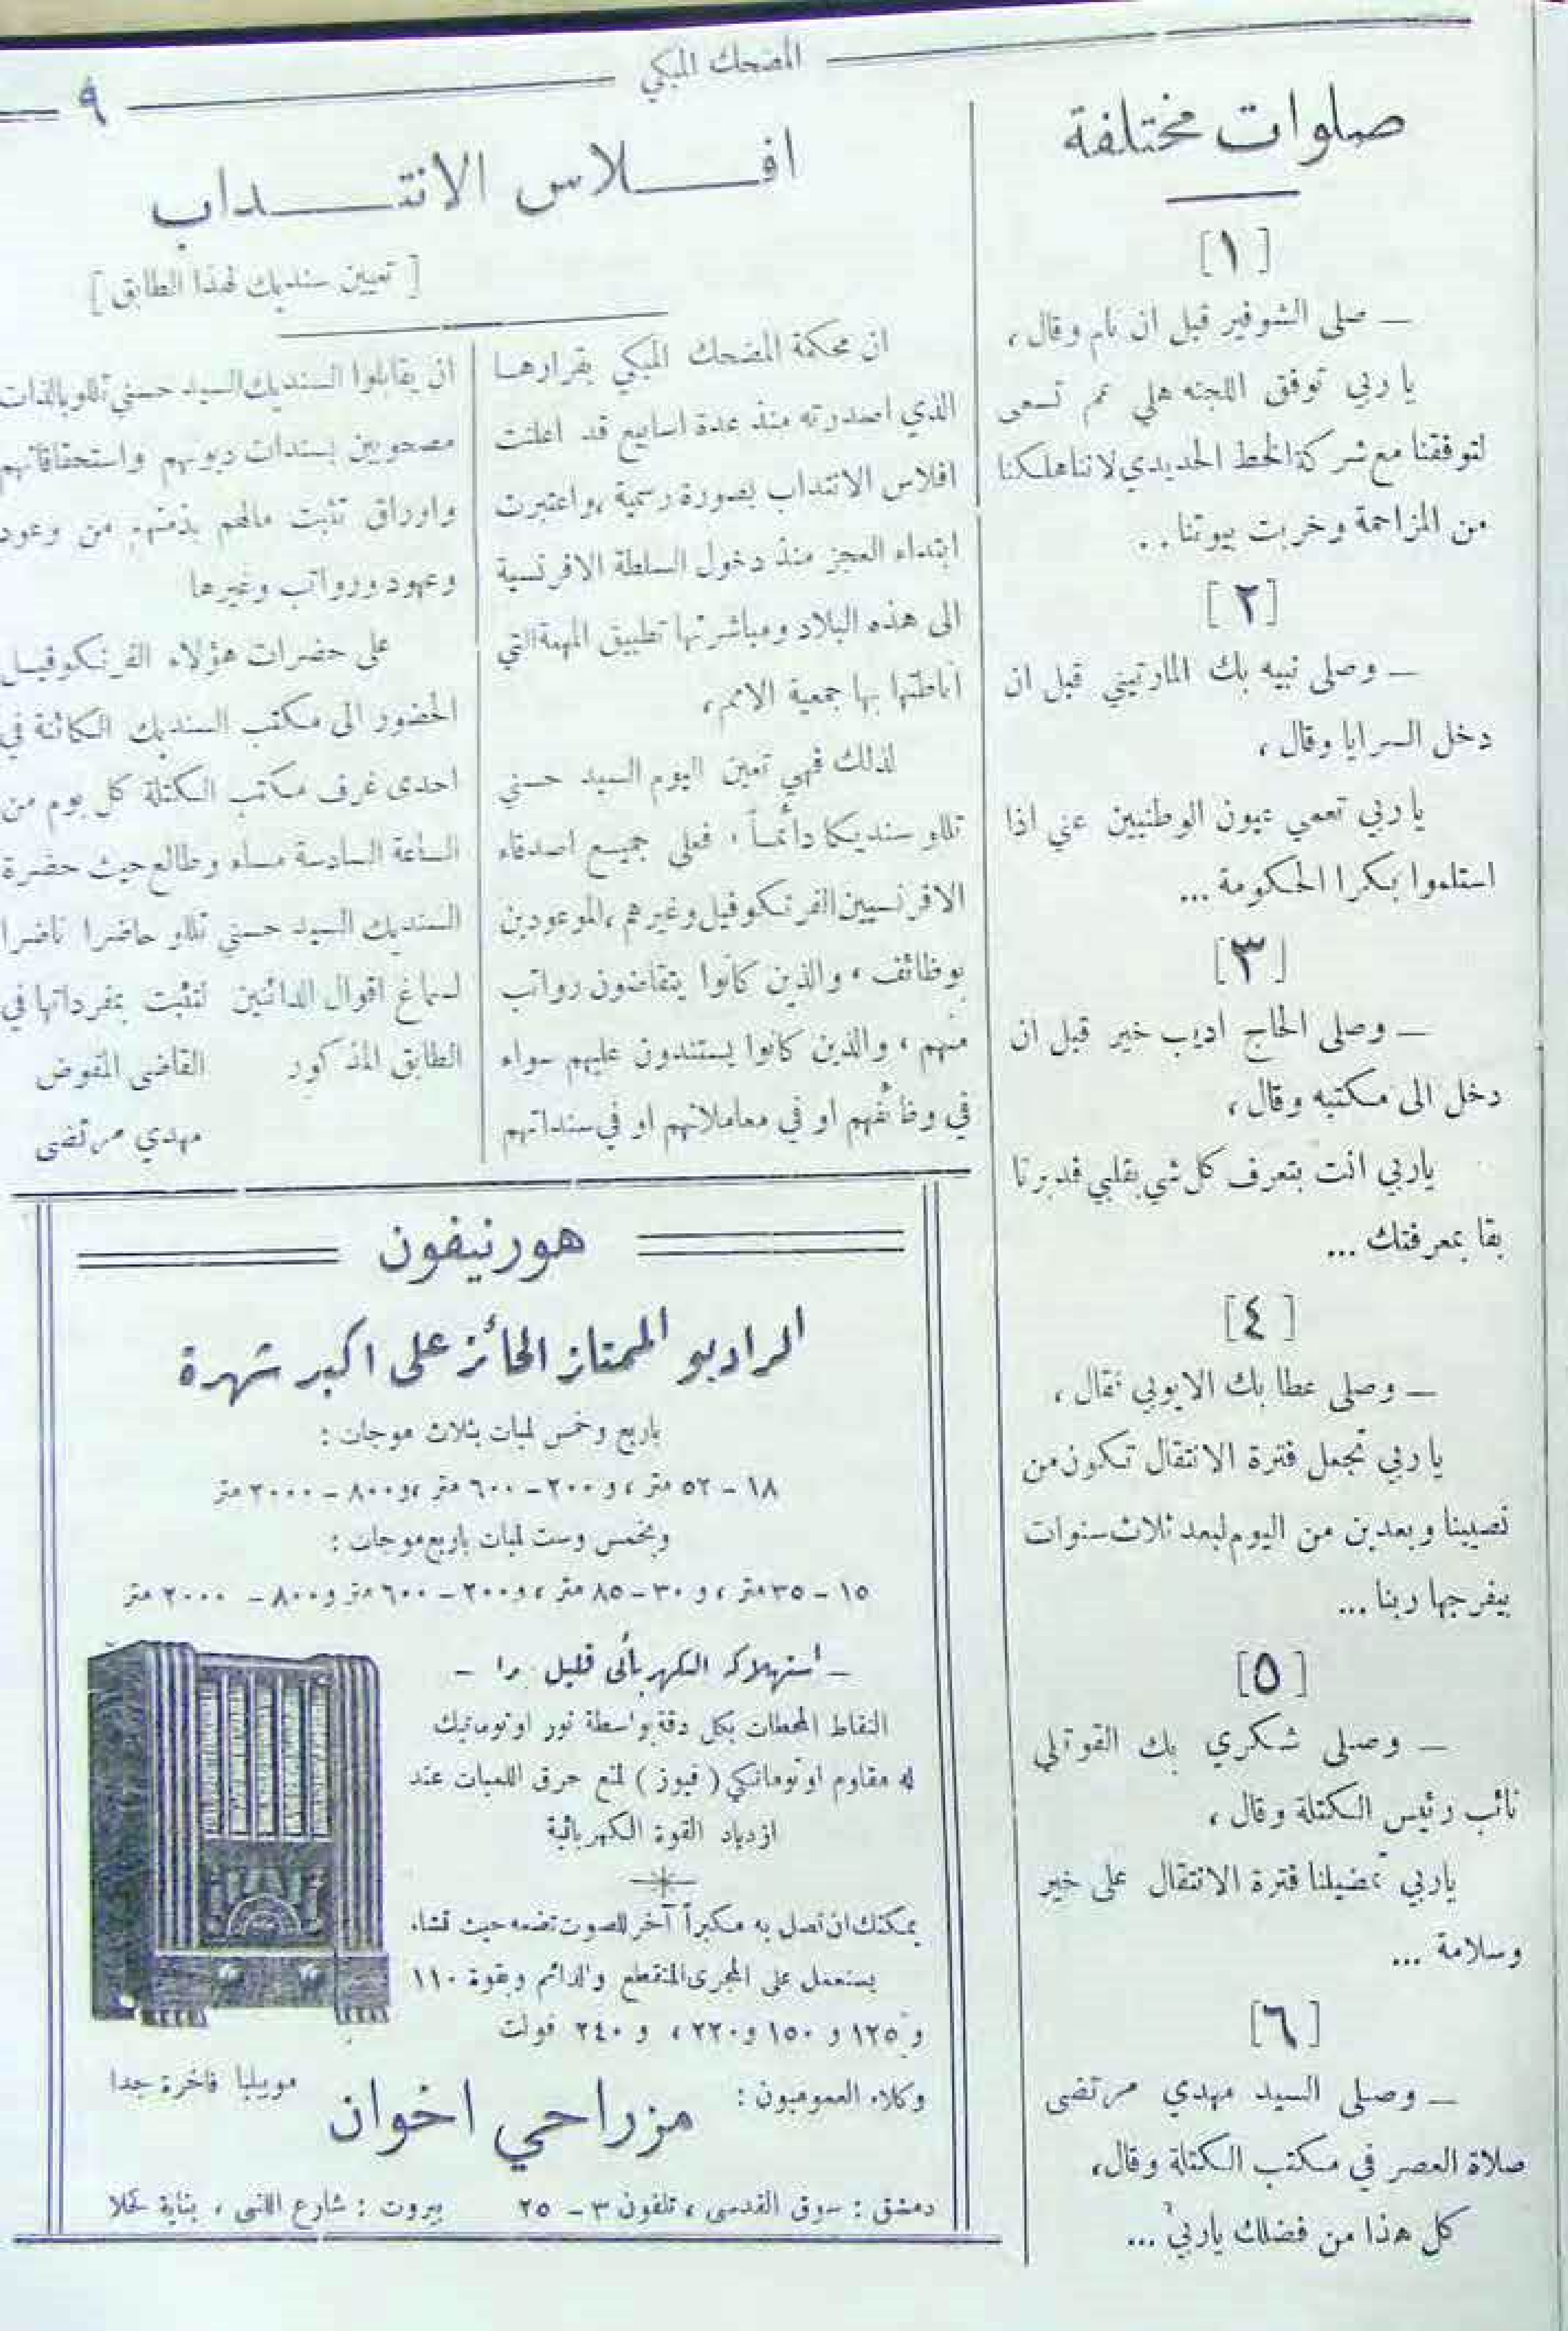 المضحك المبكي
٩
صلوات مختلفة
[١]
— صلى الشوفير قبل ان نام وقال ،
يا ربي توفق اللجنه هلي عم تسعى
لتوفقنا مع شركة الخط الحديدي لاننا هلكنا
من المزاحمة وخربت بيوتنا . .
[٢]
— وصلى نبيه بك المارتيني قبل ان
دخل السرايا وقال ،
يا ربي تعمي عيون الوطنيين عني اذا
استلموا بكرا الحكومة ...
[٣]
— وصلى الحاج اديب خير قبل ان
دخل الى مكتبه وقال ،
ياربي انت بتعرف كل شي بقلبي فدبرنا
بقا بمعرفتك ...
[٤]
— وصلى عطا بك الايوبي فقال ،
يا ربي تجعل فترة الانتقال تكون من
نصيبنا وبعدين من اليوم لبعد ثلاث سنوات
بيفرجها ربنا ...
[٥]
— وصلى شكري بك القوتلي
نائب رئيس الكتلة وقال ،
ياربي تمضيلنا فترة الانتقال على خير
وسلامة ...
[٦]
— وصلى السيد مهدي مرتضى
صلاة العصر في مكتب الكتلة وقال ،
كل هذا من فضلك ياربي ...
افـــلاس الانتـــداب
[ تعيين سنديك لهذا الطابق ]
ان محكمة المضحك المبكي بقرارها
الذي اصدرته منذ عدة اسابيع قد اعلنت
افلاس الانتداب بصورة رسمية ، واعتبرت
ابتداء العجز منذ دخول السلطة الافرنسية
الى هذه البلاد ومباشرتها تطبيق المهمة التي
اناطتها بها جمعية الامم ،
لذلك فهي تعين اليوم السيد حسني
تللو سنديكا دائماً ، فعلى جميع اصدقاء
الافرنسيين الفرنكوفيل وغيرهم ، الموعودين
بوظائف ، والذين كانوا يتقاضون رواتب
منهم ، والذين كانوا يستندون عليهم سواء
في وظائفهم او في معاملاتهم او في سنداتهم
ان يقابلوا السنديك السيد حسني تللو بالذات
مصحوبين بسندات ديونهم واستحقاقاتهم
واوراق تثبت مالهم بذمتهم من وعود
وعهود ورواتب وغيرها
على حضرات هؤلاء الفرنكوفيل
الحضور الى مكتب السنديك الكائنة في
احدى غرف مكتب الكتلة كل يوم من
الساعة السادسة مساء وطالع حيث حضرة
السنديك السيد حسني تللو حاضرا ناضرا
لسماع اقوال الدائنين لتثبت بمفرداتها في
الطابق المذكور القاضي المفوض
مهدي مرتضى
هورنيفون
الراديو الممتاز الحائز على اكبر شهرة
باربع وخمس لمبات بثلاث موجات :
١٨ – ٥٢ متر ، و ٢٠٠ – ٦٠٠ متر ، و ٨٠٠ – ٢٠٠٠ متر
وبخمس وست لمبات باربع موجات :
١٥ – ٣٥ متر ، و ٣٠ – ٨٥ متر ، و ٢٠٠ – ٦٠٠ متر و ٨٠٠ – ٢٠٠٠ متر
– استهلاكه الكهربائى قليل – 
التقاط المحطات بكل دقة بواسطة نور اوتوماتيك
له مقاوم اوتوماتيكي ( فيوز ) لمنع حرق اللمبات عند
ازدياد القوة الكهربائية
يمكنك ان تصل به مكبراً آخر للصوت تضعه حيث تشاء
يستعمل على المجرى المتقطع والدائم وبقوة ١١٠
و ١٢٥ و ١٥٠ و ٢٢٠ ، و ٢٤٠ فولت
وكلاء العموميون : مزراحي اخوان موبيليا فاخرة جدا
دمشق : سوق القدسى ، تلفون ٣ – ٢٥ بيروت : شارع اللنبى ، بناية نحلا